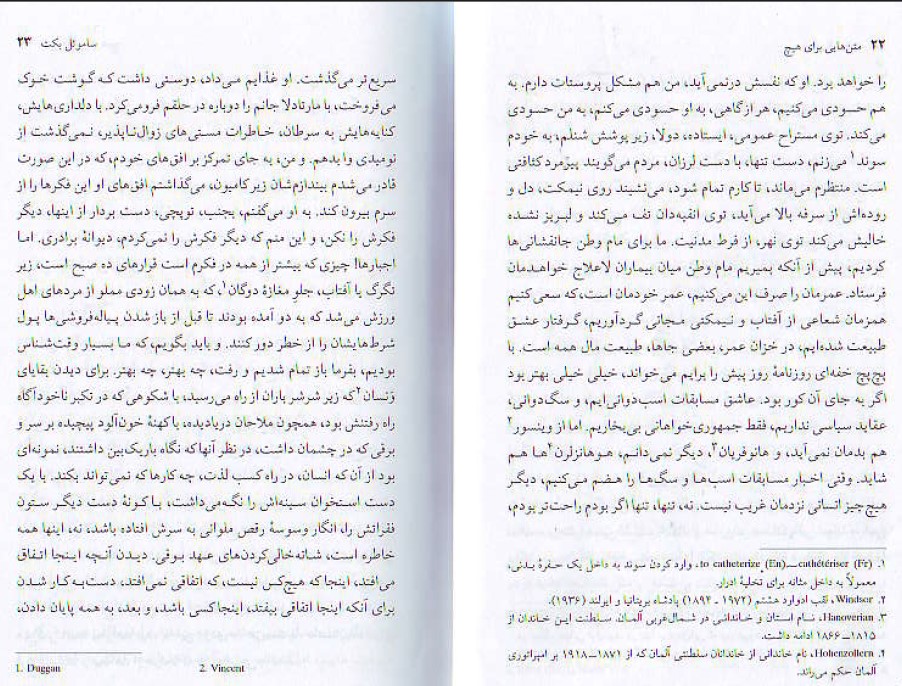 ۲۲ متن‌هایی برای هیچ
را خواهد برد. او که نفسش درنمی‌آید، من هم مشکل پروستات دارم. به
هم حسودی می‌کنیم، هر ازگاهی، به او حسودی می‌کنم، به من حسودی
می‌کند. توی مستراح عمومی، ایستاده، دولا، زیر پوشش شنلم، به خودم
سوند۱ می‌زنم، دست تنها، با دست لرزان، مردم می‌گویند پیرمرد کثافتی
است. منتظرم می‌ماند، تا کارم تمام شود، می‌نشیند روی نیمکت، دل و
روده‌اش از سرفه بالا می‌آید، توی انفیه‌دان تف می‌کند و لبریز نشده
خالیش می‌کند توی نهر، از فرط مدنیت. ما برای مام وطن جانفشانی‌ها
کردیم، پیش از آنکه بمیریم مام وطن میان بیماران لاعلاج خواهدمان
فرستاد. عمرمان را صرف این می‌کنیم، عمر خودمان است، که سعی کنیم
همزمان شعاعی از آفتاب و نیمکتی مجانی گردآوریم، گرفتار عشق
طبیعت شده‌ایم، در خزان عمر، بعضی جاها، طبیعت مال همه است. با
پچ‌پچ خفه‌ای روزنامهٔ روز پیش را برایم می‌خواند، خیلی خیلی بهتر بود
اگر به جای آن کور بود. عاشق مسابقات اسب‌دوانی‌ایم، و سگ‌دوانی،
عقاید سیاسی نداریم، فقط جمهوری‌خواهانی بی‌بخاریم. اما از وینسور۲
هم بدمان نمی‌آید، و هانوفریان۳، دیگر نمی‌دانم، هوهانزلرن۴ها هم
شاید. وقتی اخبار مسابقات اسب‌ها و سگ‌ها را هضم می‌کنیم، دیگر
هیچ‌چیز انسانی نزدمان غریب نیست. نه، تنها، تنها اگر بودم راحت‌تر بودم،
۱. to catheterize (En)—cathétériser (Fr)، وارد کردن سوند به داخل یک حفرهٔ بدنی،
معمولاً به داخل مثانه برای تخلیهٔ ادرار.
۲. Windsor، لقب ادوارد هشتم (۱۹۷۲ ـ ۱۸۹۴) پادشاه بریتانیا و ایرلند (۱۹۳۶).
۳. Hanoverian، نام استان و خاندانی در شمال‌غربی آلمان. سلطنت این خاندان از
۱۸۱۵—۱۸۶۶ ادامه داشت.
۴. Hohenzollern، نام خاندانی از خاندانان سلطنتی آلمان که از ۱۸۷۱—۱۹۱۸ بر امپراتوری
آلمان حکم می‌راند.
ساموئل بکت ۲۳
سریع‌تر می‌گذشت. او غذایم می‌داد، دوستی داشت که گوشت خوک
می‌فروخت، با مارتادلا جانم را دوباره در حلقم فرومی‌کرد. با دلداری‌هایش،
کنایه‌هایش به سرطان، خاطرات مستی‌های زوال‌ناپذیر، نمی‌گذاشت از
نومیدی وا بدهم. و من، به جای تمرکز بر افق‌های خودم، که در این صورت
قادر می‌شدم بیندازم‌شان زیر کامیون، می‌گذاشتم افق‌های او این فکرها را از
سرم بیرون کند. به او می‌گفتم، بجنب، توپچی، دست بردار از اینها، دیگر
فکرش را نکن، و این منم که دیگر فکرش را نمی‌کردم، دیوانهٔ برادری. اما
اجبارها! چیزی که بیشتر از همه در فکرم است قرارهای ده صبح است، زیر
تگرگ یا آفتاب، جلوِ مغازهٔ دوگان۱، که به همان زودی مملو از مردهای اهل
ورزش می‌شد که به دو آمده بودند تا قبل از باز شدن پیاله‌فروشی‌ها پول
شرط‌هایشان را از خطر دور کنند. و باید بگویم، که ما بسیار وقت‌شناس
بودیم، بفرما باز تمام شدیم و رفت، چه بهتر، چه بهتر. برای دیدن بقایای
ونسان۲ که زیر شرشر باران از راه می‌رسید، با شکوهی که در تکبر ناخودآگاه
راه رفتنش بود، همچون ملاحان دریادیده، با کهنهٔ خون‌آلود پیچیده بر سر و
برقی که در چشمان داشت، در نظر آنها که نگاه باریک‌بین داشتند، نمونه‌ای
بود از آن که انسان، در راه کسب لذت، چه کارها که نمی‌تواند بکند. با یک
دست استخوان سینه‌اش را نگه‌می‌داشت، با کونهٔ دست دیگر ستون
فقراتش را، انگار وسوسهٔ رقص ملوانی به سرش افتاده باشد، نه، اینها همه
خاطره است، شانه‌خالی‌کردن‌های عهد بوقی. دیدن آنچه اینجا اتفاق
می‌افتد، اینجا که هیچ‌کس نیست، که اتفاقی نمی‌افتد، دست‌به‌کار شدن
برای آنکه اینجا اتفاقی بیفتد، اینجا کسی باشد، و بعد، به همه پایان دادن،
1. Duggan 2. Vincent